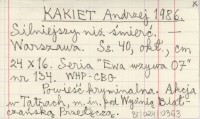 KAKIET Andrzej 1986.
Silniejszy niż śmierć. —
Warszawa. Ss. 40, okł., cm
24 x 16. Seria "Ewa wzywa 07"
nr 134. WHP-CBG
Powieść kryminalna. Akcja
w Tatrach, m.in. pod Wyżnią Blat-
czańską Przełęczą.